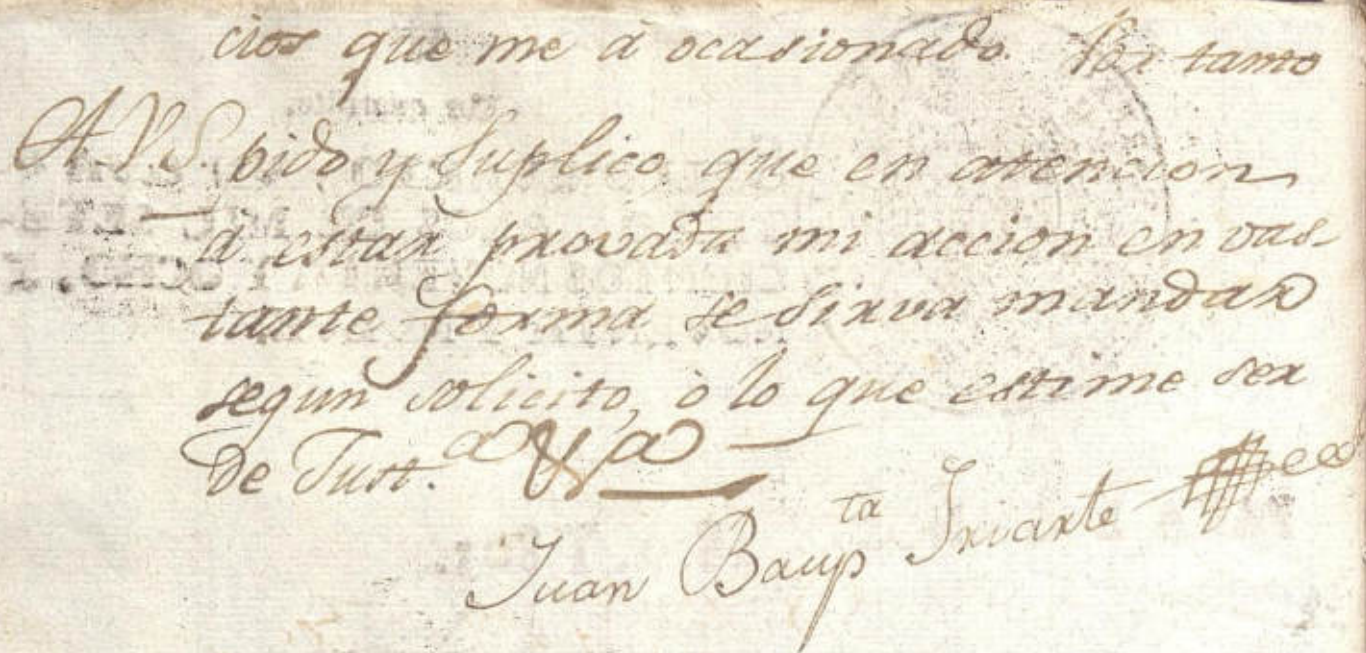 cios que me à ocasionado. Por tanto
A. V.S. pido y Suplico, que en atencion
à estar provada mi accion en vas-
tante forma se sirva mandar
segun solicito, ò lo que estime ser
de Just.a &a
Juan Baupta Iriarte